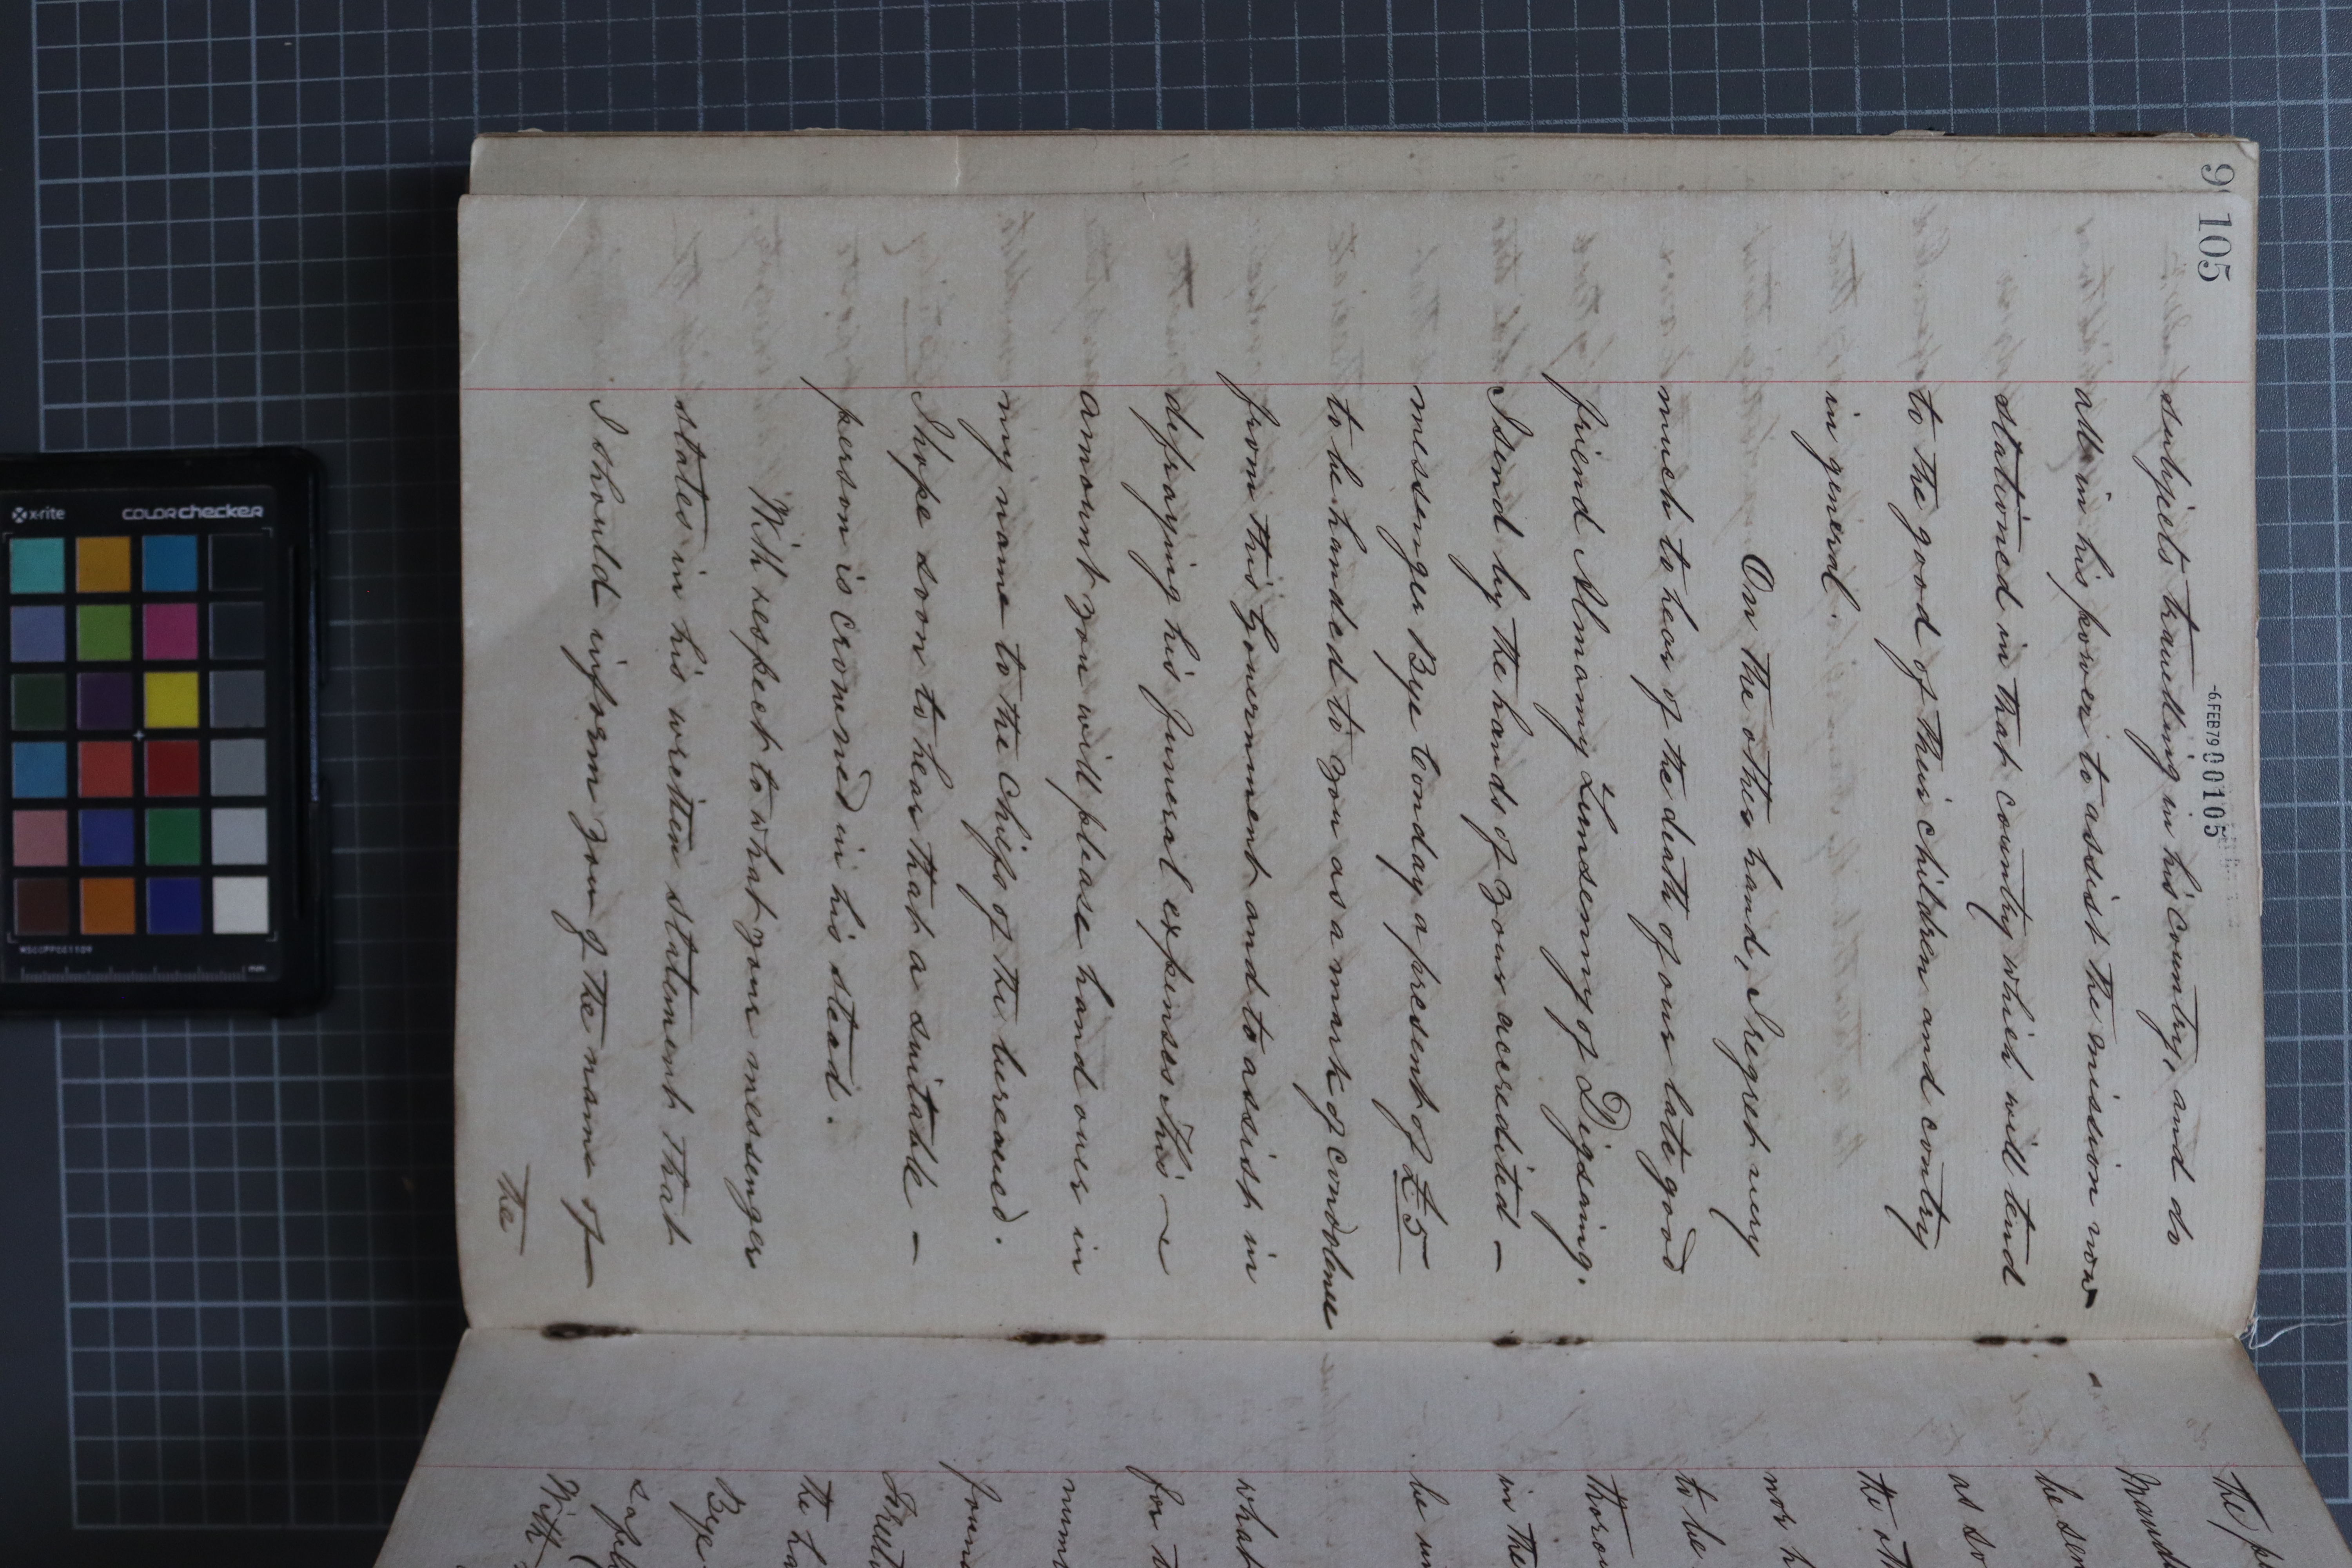 9 105
-6FEB79 000105
subjects travelling in his country, and do
all in his power to assist the mission now
stationed in that country which will tend
to the good of their children and contry
in general.
On the other hand, I regret very
much to hear of the death of our late good
friend Almamy Lumsenny of Digsaing.
I send by the hands of your accredited –
messenger Bye Conday a present of £5
to be handed to you as a mark of condolence
from this Government and to assist in
defraying his funeral expenses. This ~
amount you will please hand over in
my name to the Chiefs of the bereaved.
I hope soon to hear that a suitable –
person is crowned in his stead.
With respect to what your messenger
states in his written statement that
I should inform you of the name of
the
The
he se
as so
the oth
nor h
to be
thoro
in the
be
what
for
num
foun
the ha
Bye
With
x-rite
colorchecker
MSCCPPCC1109
mm